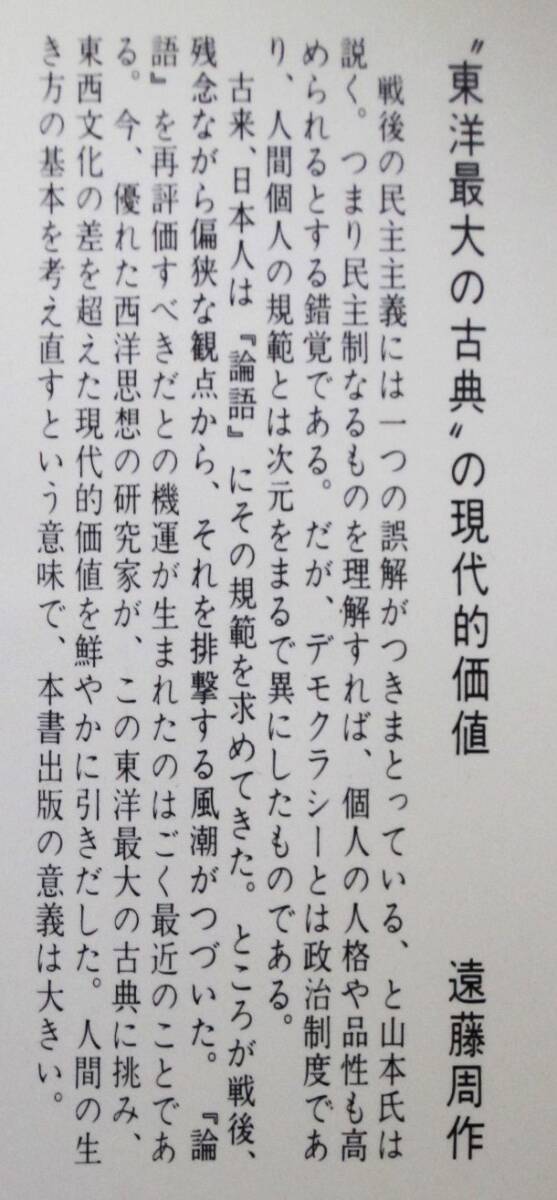 〝東洋最大の古典〟の現代的価値　遠藤周作
戦後の民主主義には一つの誤解がつきまとっている、と山本氏は
説く。つまり民主制なるものを理解すれば、個人の人格や品性も高
められるとする錯覚である。だが、デモクラシーとは政治制度であ
り、人間個人の規範とは次元をまるで異にしたものである。
古来、日本人は『論語』にその規範を求めてきた。ところが戦後、
残念ながら偏狭な観点から、それを排撃する風潮がつづいた。『論
語』を再評価すべきだとの機運が生まれたのはごく最近のことであ
る。今、優れた西洋思想の研究家が、この東洋最大の古典に挑み、
東西文化の差を超えた現代的価値を鮮やかに引きだした。人間の生
き方の基本を考え直すという意味で、本書出版の意義は大きい。